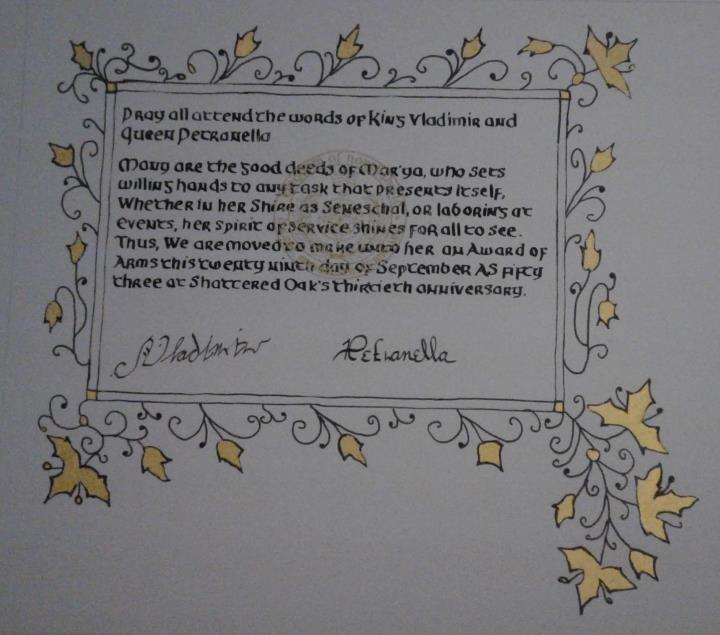 Pray all attend the words of King Vladimir and
Queen Petranella
Many are the good deeds of Mar'ya, who sets
willing hands to any task that presents itself,
Whether in her Shire as Seneschal, or laboring at
events, her spirit of service shines for all to see.
Thus, We are moved to make unto her an Award of
Arms this twenty ninth day of September AS fifty
three at Shattered Oak's thirtieth anniversary.
Vladimir Petranella